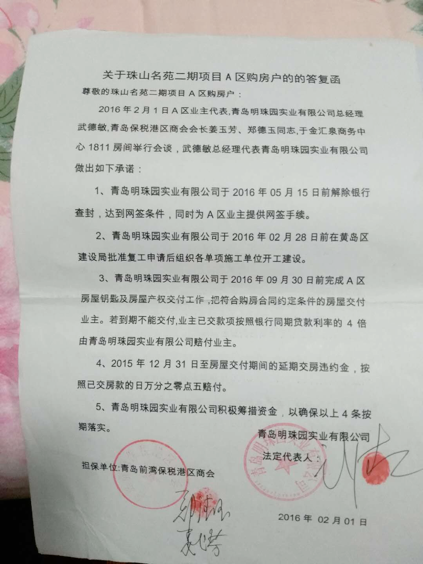 关于珠山名苑二期项目A区购房户的的答复函
尊敬的珠山名苑二期项目A区购房户：
2016年2月1日A区业主代表,青岛明珠园实业有限公司总经理
武德敏,青岛保税港区商会会长姜玉芳、郑德玉同志,于金汇泉商务中
心1811房间举行会谈，武德敏总经理代表青岛明珠园实业有限公司
做出如下承诺：
1、青岛明珠园实业有限公司于2016年05月15日前解除银行
查封，达到网签条件，同时为A区业主提供网签手续。
2、青岛明珠园实业有限公司于2016年02月28日前在黄岛区
建设局批准复工申请后组织各单项施工单位开工建设。
3、青岛明珠园实业有限公司于2016年09月30日前完成A区
房屋钥匙及房屋产权交付工作,把符合购房合同约定条件的房屋交付
业主。若到期不能交付,业主已交款项按照银行同期贷款利率的4倍
由青岛明珠园实业有限公司赔付业主。
4、2015年12月31日至房屋交付期间的延期交房违约金，按
照已交房款的日万分之零点五赔付。
5、青岛明珠园实业有限公司积极筹措资金，以确保以上4条按
期落实。
青岛明珠园实业有限公司
法定代表人：
担保单位:青岛前湾保税港区商会
2016年02月01日